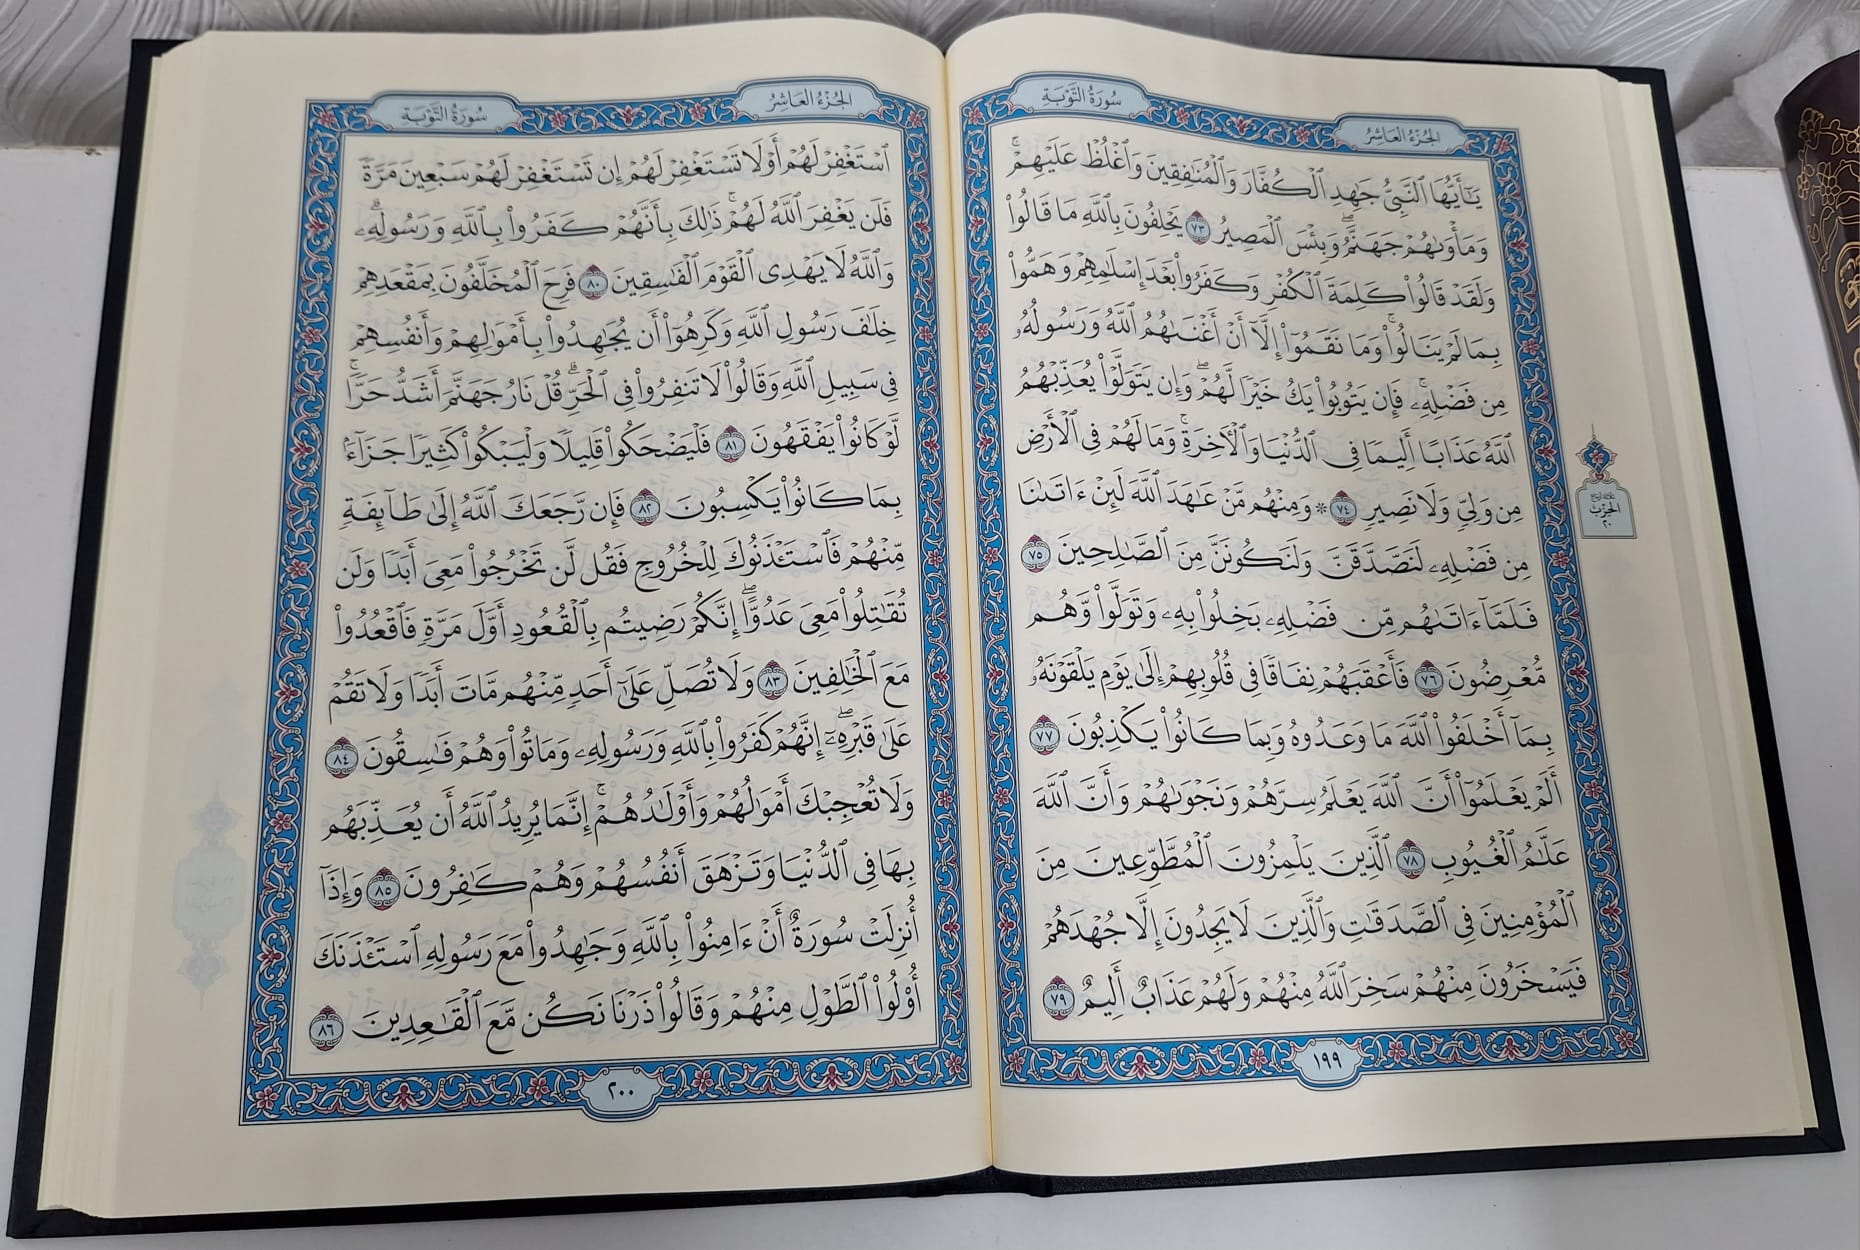 سُورَةُ التَّوْبَةِ
الجُزْءُ العَاشِرُ
يَـٰٓأَيُّهَا ٱلنَّبِىُّ جَـٰهِدِ ٱلْكُفَّارَ وَٱلْمُنَـٰفِقِينَ وَٱغْلُظْ عَلَيْهِمْۚ
وَمَأْوَىٰهُمْ جَهَنَّمُۖ وَبِئْسَ ٱلْمَصِيرُ ٧٣ يَحْلِفُونَ بِٱللَّهِ مَا قَالُوا۟
وَلَقَدْ قَالُوا۟ كَلِمَةَ ٱلْكُفْرِ وَكَفَرُوا۟ بَعْدَ إِسْلَـٰمِهِمْ وَهَمُّوا۟
بِمَا لَمْ يَنَالُوا۟ۚ وَمَا نَقَمُوٓا۟ إِلَّآ أَنْ أَغْنَىٰهُمُ ٱللَّهُ وَرَسُولُهُۥ
مِن فَضْلِهِۦۚ فَإِن يَتُوبُوا۟ يَكُ خَيْرًا لَّهُمْۖ وَإِن يَتَوَلَّوْا۟ يُعَذِّبْهُمُ
ٱللَّهُ عَذَابًا أَلِيمًا فِى ٱلدُّنْيَا وَٱلْـَٔاخِرَةِۚ وَمَا لَهُمْ فِى ٱلْأَرْضِ
مِن وَلِىٍّ وَلَا نَصِيرٍ ٧٤ ۞ وَمِنْهُم مَّنْ عَـٰهَدَ ٱللَّهَ لَئِنْ ءَاتَىٰنَا
مِن فَضْلِهِۦ لَنَصَّدَّقَنَّ وَلَنَكُونَنَّ مِنَ ٱلصَّـٰلِحِينَ ٧٥
فَلَمَّآ ءَاتَىٰهُم مِّن فَضْلِهِۦ بَخِلُوا۟ بِهِۦ وَتَوَلَّوا۟ وَّهُم
مُّعْرِضُونَ ٧٦ فَأَعْقَبَهُمْ نِفَاقًا فِى قُلُوبِهِمْ إِلَىٰ يَوْمِ يَلْقَوْنَهُۥ
بِمَآ أَخْلَفُوا۟ ٱللَّهَ مَا وَعَدُوهُ وَبِمَا كَانُوا۟ يَكْذِبُونَ ٧٧
أَلَمْ يَعْلَمُوٓا۟ أَنَّ ٱللَّهَ يَعْلَمُ سِرَّهُمْ وَنَجْوَىٰهُمْ وَأَنَّ ٱللَّهَ
عَلَّـٰمُ ٱلْغُيُوبِ ٧٨ ٱلَّذِينَ يَلْمِزُونَ ٱلْمُطَّوِّعِينَ مِنَ
ٱلْمُؤْمِنِينَ فِى ٱلصَّدَقَـٰتِ وَٱلَّذِينَ لَا يَجِدُونَ إِلَّا جُهْدَهُمْ
فَيَسْخَرُونَ مِنْهُمْ سَخِرَ ٱللَّهُ مِنْهُمْ وَلَهُمْ عَذَابٌ أَلِيمٌ ٧٩
١٩٩
الحِزْب
٢٠
الجُزْءُ العَاشِرُ
سُورَةُ التَّوْبَةِ
ٱسْتَغْفِرْ لَهُمْ أَوْ لَا تَسْتَغْفِرْ لَهُمْ إِن تَسْتَغْفِرْ لَهُمْ سَبْعِينَ مَرَّةً
فَلَن يَغْفِرَ ٱللَّهُ لَهُمْۚ ذَٰلِكَ بِأَنَّهُمْ كَفَرُوا۟ بِٱللَّهِ وَرَسُولِهِۦۗ
وَٱللَّهُ لَا يَهْدِى ٱلْقَوْمَ ٱلْفَـٰسِقِينَ ٨٠ فَرِحَ ٱلْمُخَلَّفُونَ بِمَقْعَدِهِمْ
خِلَـٰفَ رَسُولِ ٱللَّهِ وَكَرِهُوٓا۟ أَن يُجَـٰهِدُوا۟ بِأَمْوَٰلِهِمْ وَأَنفُسِهِمْ
فِى سَبِيلِ ٱللَّهِ وَقَالُوا۟ لَا تَنفِرُوا۟ فِى ٱلْحَرِّۗ قُلْ نَارُ جَهَنَّمَ أَشَدُّ حَرًّاۚ
لَّوْ كَانُوا۟ يَفْقَهُونَ ٨١ فَلْيَضْحَكُوا۟ قَلِيلًا وَلْيَبْكُوا۟ كَثِيرًا جَزَآءًۢ
بِمَا كَانُوا۟ يَكْسِبُونَ ٨٢ فَإِن رَّجَعَكَ ٱللَّهُ إِلَىٰ طَآئِفَةٍ
مِّنْهُمْ فَٱسْتَـْٔذَنُوكَ لِلْخُرُوجِ فَقُل لَّن تَخْرُجُوا۟ مَعِىَ أَبَدًا وَلَن
تُقَـٰتِلُوا۟ مَعِىَ عَدُوًّاۖ إِنَّكُمْ رَضِيتُم بِٱلْقُعُودِ أَوَّلَ مَرَّةٍ فَٱقْعُدُوا۟
مَعَ ٱلْخَـٰلِفِينَ ٨٣ وَلَا تُصَلِّ عَلَىٰٓ أَحَدٍ مِّنْهُم مَّاتَ أَبَدًا وَلَا تَقُمْ
عَلَىٰ قَبْرِهِۦٓۖ إِنَّهُمْ كَفَرُوا۟ بِٱللَّهِ وَرَسُولِهِۦ وَمَاتُوا۟ وَهُمْ فَـٰسِقُونَ ٨٤
وَلَا تُعْجِبْكَ أَمْوَٰلُهُمْ وَأَوْلَـٰدُهُمْۚ إِنَّمَا يُرِيدُ ٱللَّهُ أَن يُعَذِّبَهُم
بِهَا فِى ٱلدُّنْيَا وَتَزْهَقَ أَنفُسُهُمْ وَهُمْ كَـٰفِرُونَ ٨٥ وَإِذَآ
أُنزِلَتْ سُورَةٌ أَنْ ءَامِنُوا۟ بِٱللَّهِ وَجَـٰهِدُوا۟ مَعَ رَسُولِهِ ٱسْتَـْٔذَنَكَ
أُو۟لُوا۟ ٱلطَّوْلِ مِنْهُمْ وَقَالُوا۟ ذَرْنَا نَكُن مَّعَ ٱلْقَـٰعِدِينَ ٨٦
٢٠٠